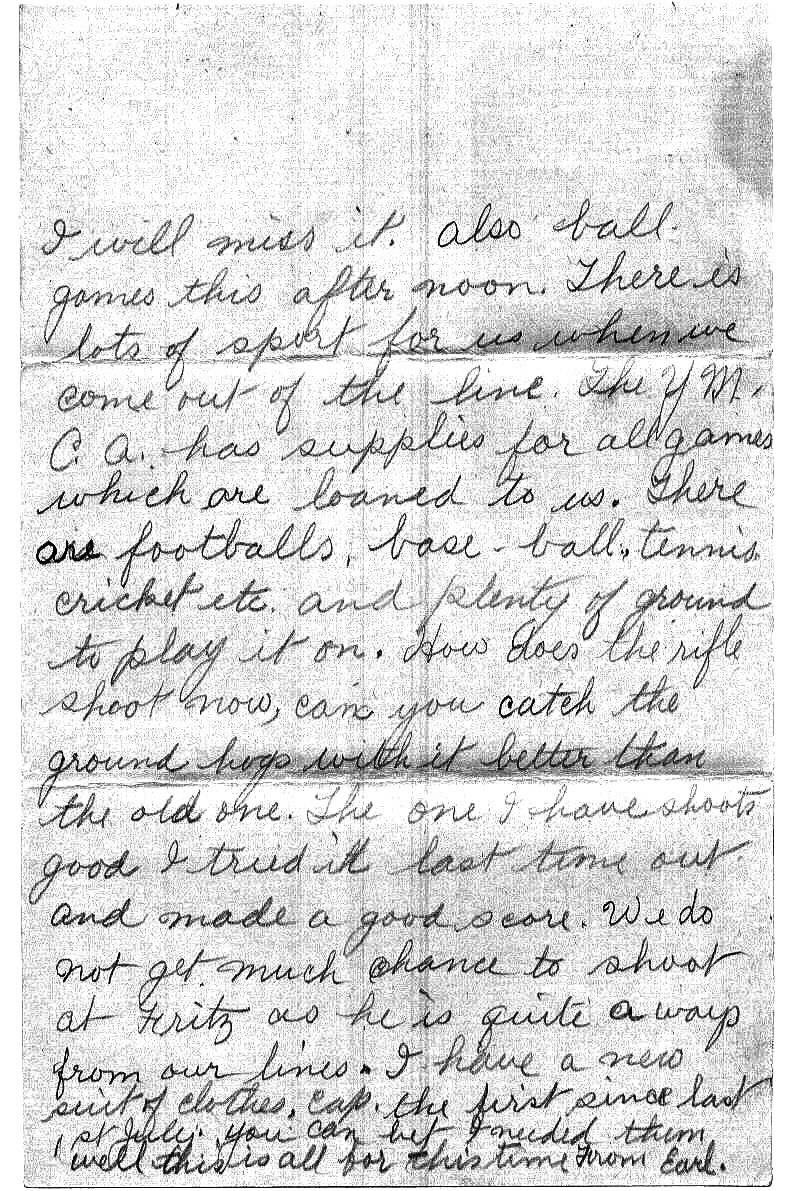 I will miss it. also ball
games this after noon. There is
lots of sport for us when we
come out of the line. The Y M.
C. A. has supplies for all games
which are loaned to us. There
are footballs, base-ball, tennis
cricket etc. and plenty of ground
to play it on. How does the rifle
shoot now, can you catch the
ground hogs with it better than
the old one. The one I have shoots
good I tried it last time out
and made a good score. We do
not get much chance to shoot
at Fritz as he is quite a ways
from our lines. I have a new
suit of clothes, cap. the first since last
1st July. you can bet I needed them
well this is all for this time From Earl.